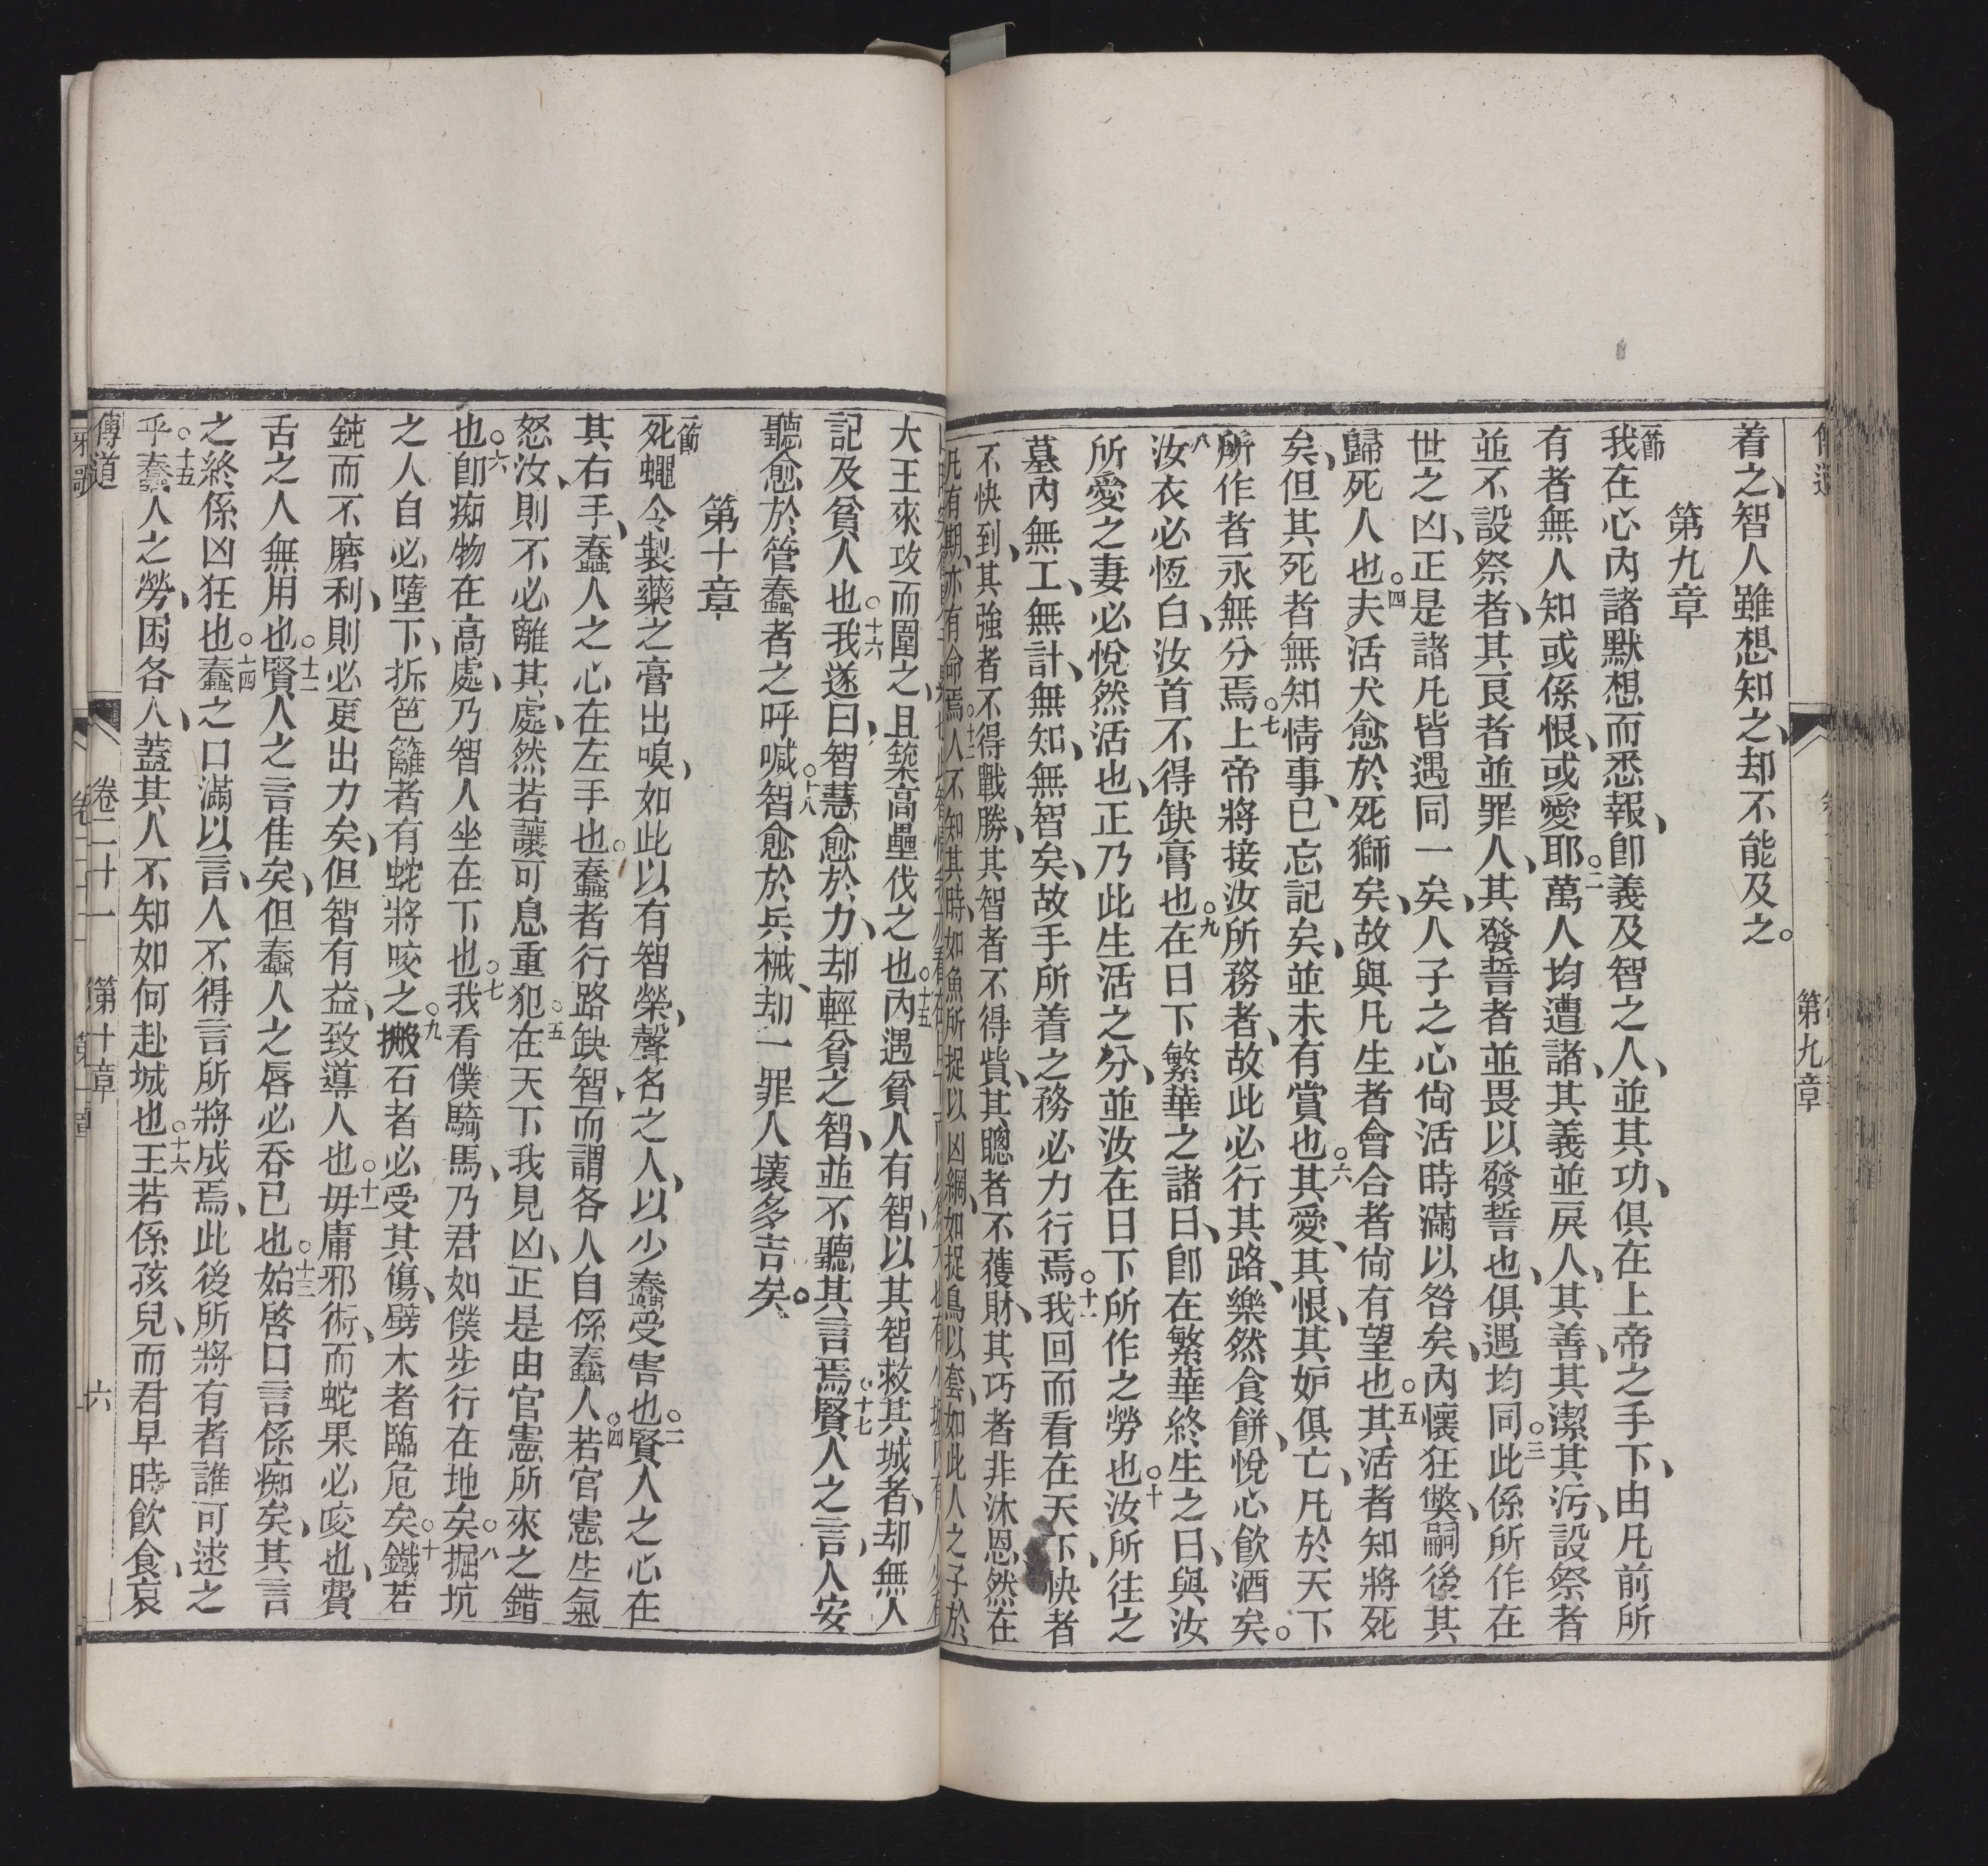 第九章
着之、智人雖想知之、却不能及之。
第九章
一節
我在心內諸默想而悉報、卽義及智之人、並其功、俱在上帝之手下、由凡前所
有者無人知或係恨、或愛耶。二萬人均遭諸、其義並戾人、其善、其潔其污、設祭者
並不設祭者、其良者並罪人、其發誓者並畏以發誓也、俱遇均同。三此係所作在
世之凶、正是諸凡皆遇同一矣、人子之心尙活時滿以咎矣、內懷狂獘、嗣後其
歸死人也。四夫活犬愈於死獅矣、故與凡生者會合者尙有望也。五其活者知將死
矣、但其死者無知情事、已忘記矣、並未有賞也。六其愛、其恨、其妒俱亡、凡於天下
所作者永無分焉。七上帝將接汝所務者、故此必行其路、樂然食餅、悅心飲酒矣。
八汝衣必恆白、汝首不得缺膏也。九在日下繁華之諸日、卽在繁華終生之日、與汝
所愛之妻必悅然活也、正乃此生活之分、並汝在日下所作之勞也。十汝所往之
墓內無工、無計、無知、無智矣、故手所着之務必力行焉。十一我回而看在天下、快者
不快到、其強者不得戰勝、其智者不得貲、其聰者不獲財、其巧者非沐恩、然在
凡有期、亦有命焉。十二人不知其時、如魚所捉以凶綱、如捉鳥以套、如此人之子於
大王來攻而圍之、且築高壘伐之也。十五內遇貧人有智、以其智救其城者、却無人
記及貧人也。十六我遂曰、智慧愈於力、却輕貧之智、並不聽其言焉。十七賢人之言、人安
聽愈於管蠢者之呼喊。十八智愈於兵械、却一罪人壞多吉矣。
第十章
一節
死蠅令製藥之膏出嗅、如此以有智榮、聲名之人、以少蠢受害也。二賢人之心在
其右手、蠢人之心在左手也。蠢者行路缺智、而謂各人自係蠢人。四若官憲生氣
怒汝、則不必離其處、然若讓可息重犯。五在天下我見凶、正是由官憲所來之錯
也。六卽痴物在高處、乃智人坐在下也。七我看僕騎馬、乃君如僕步行在地矣。八掘坑
之人自必墮下、拆笆籬者有蛇將咬之。九搬石者必受其傷、劈木者臨危矣。十鐵若
鈍而不磨利、則必更出力矣、但智有益、致導人也。十一毋庸邪術、而蛇果必咬也、費
舌之人無用也。十二賢人之言佳矣、但蠢人之唇必吞已也。十三始啓口言係痴矣、其言
之終係凶狂也。十四蠢之口滿以言、人不得言所將成焉、此後所將有者誰可逑之
乎。十五蠢人之勞、困各人、蓋其人不知如何赴城也。十六王若係孩兒、而君早時飲食、哀
傳道 卷二十一 第十章 六